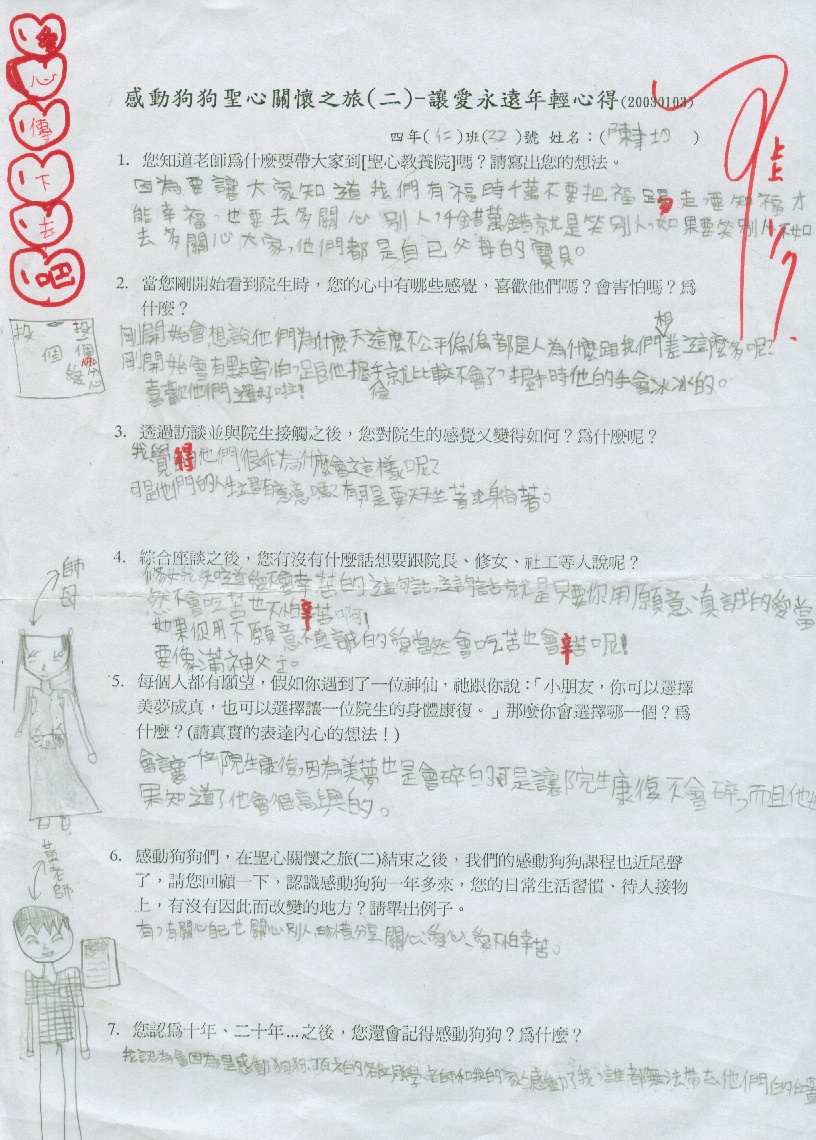 愛
心
傳
下
去
吧
感動狗狗聖心關懷之旅(二)-讓愛永遠年輕心得(20030103)
四年(仁)班(22)號 姓名：(陳 )
上上
1. 您知道老師為什麼要帶大家到[聖心教養院]嗎？請寫出您的想法。
因為要讓大家知道我們有福時千萬不要把福踢走要知福才
能幸福，也要去多關心別人，千錯萬錯就是笑別人，如果要笑別人不如
去多關心大家，他們都是自己父母的寶貝。
2. 當您剛開始看到院生時，您的心中有哪些感覺，喜歡他們嗎？會害怕嗎？為
什麼？
剛開始會想說他們為什麼天這麼不公平偏偏都是人為什麼跟我們差這麼多呢？
想
剛開始會有點害怕，但握手就比較不會了，握手時他的手會冰冰的。
喜歡他們還好啦！
投個
3. 透過訪談並與院生接觸之後，您對院生的感覺又變得如何？為什麼呢？
我覺得他們很 為什麼會這樣呢？
可是他們的人生還有意 嗎？有 是要天天坐著 躺著。
4. 綜合座談之後，您有沒有什麼話想要跟院長、修女、社工等人說呢？
修女我 知道您不要辛苦的這句話，這句話就是只要你用願意、真誠的愛當
然不會吃苦也不怕辛苦啊！
如果你用不願意不真誠的愛當然會吃苦也會辛苦呢！
要像滿神父 。
師母
5. 每個人都有願望，假如你遇到了一位神仙，祂跟你說：「小朋友，你可以選擇
美夢成真，也可以選擇讓一位院生的身體康復。」那麼你會選擇哪一個？為
什麼？(請真實的表達內心的想法！)
會讓一位院生康復，因為美夢也是會碎的可是讓院生康復不會碎，而且他如
果知道了他會很高興的。
6. 感動狗狗們，在聖心關懷之旅(二)結束之後，我們的感動狗狗課程也近尾聲
了，請您回顧一下，認識感動狗狗一年多來，您的日常生活習慣、待人接物
上，有沒有因此而改變的地方？請舉出例子。
有，有關心自己也關心別人 惜分享、關心、愛心、愛不怕辛苦。
黃老師
7. 您認為十年、二十年…之後，您還會記得感動狗狗？為什麼？
我認為會因為是感動狗狗 老師和我的家人感動了我，誰都無法帶去他們的位置